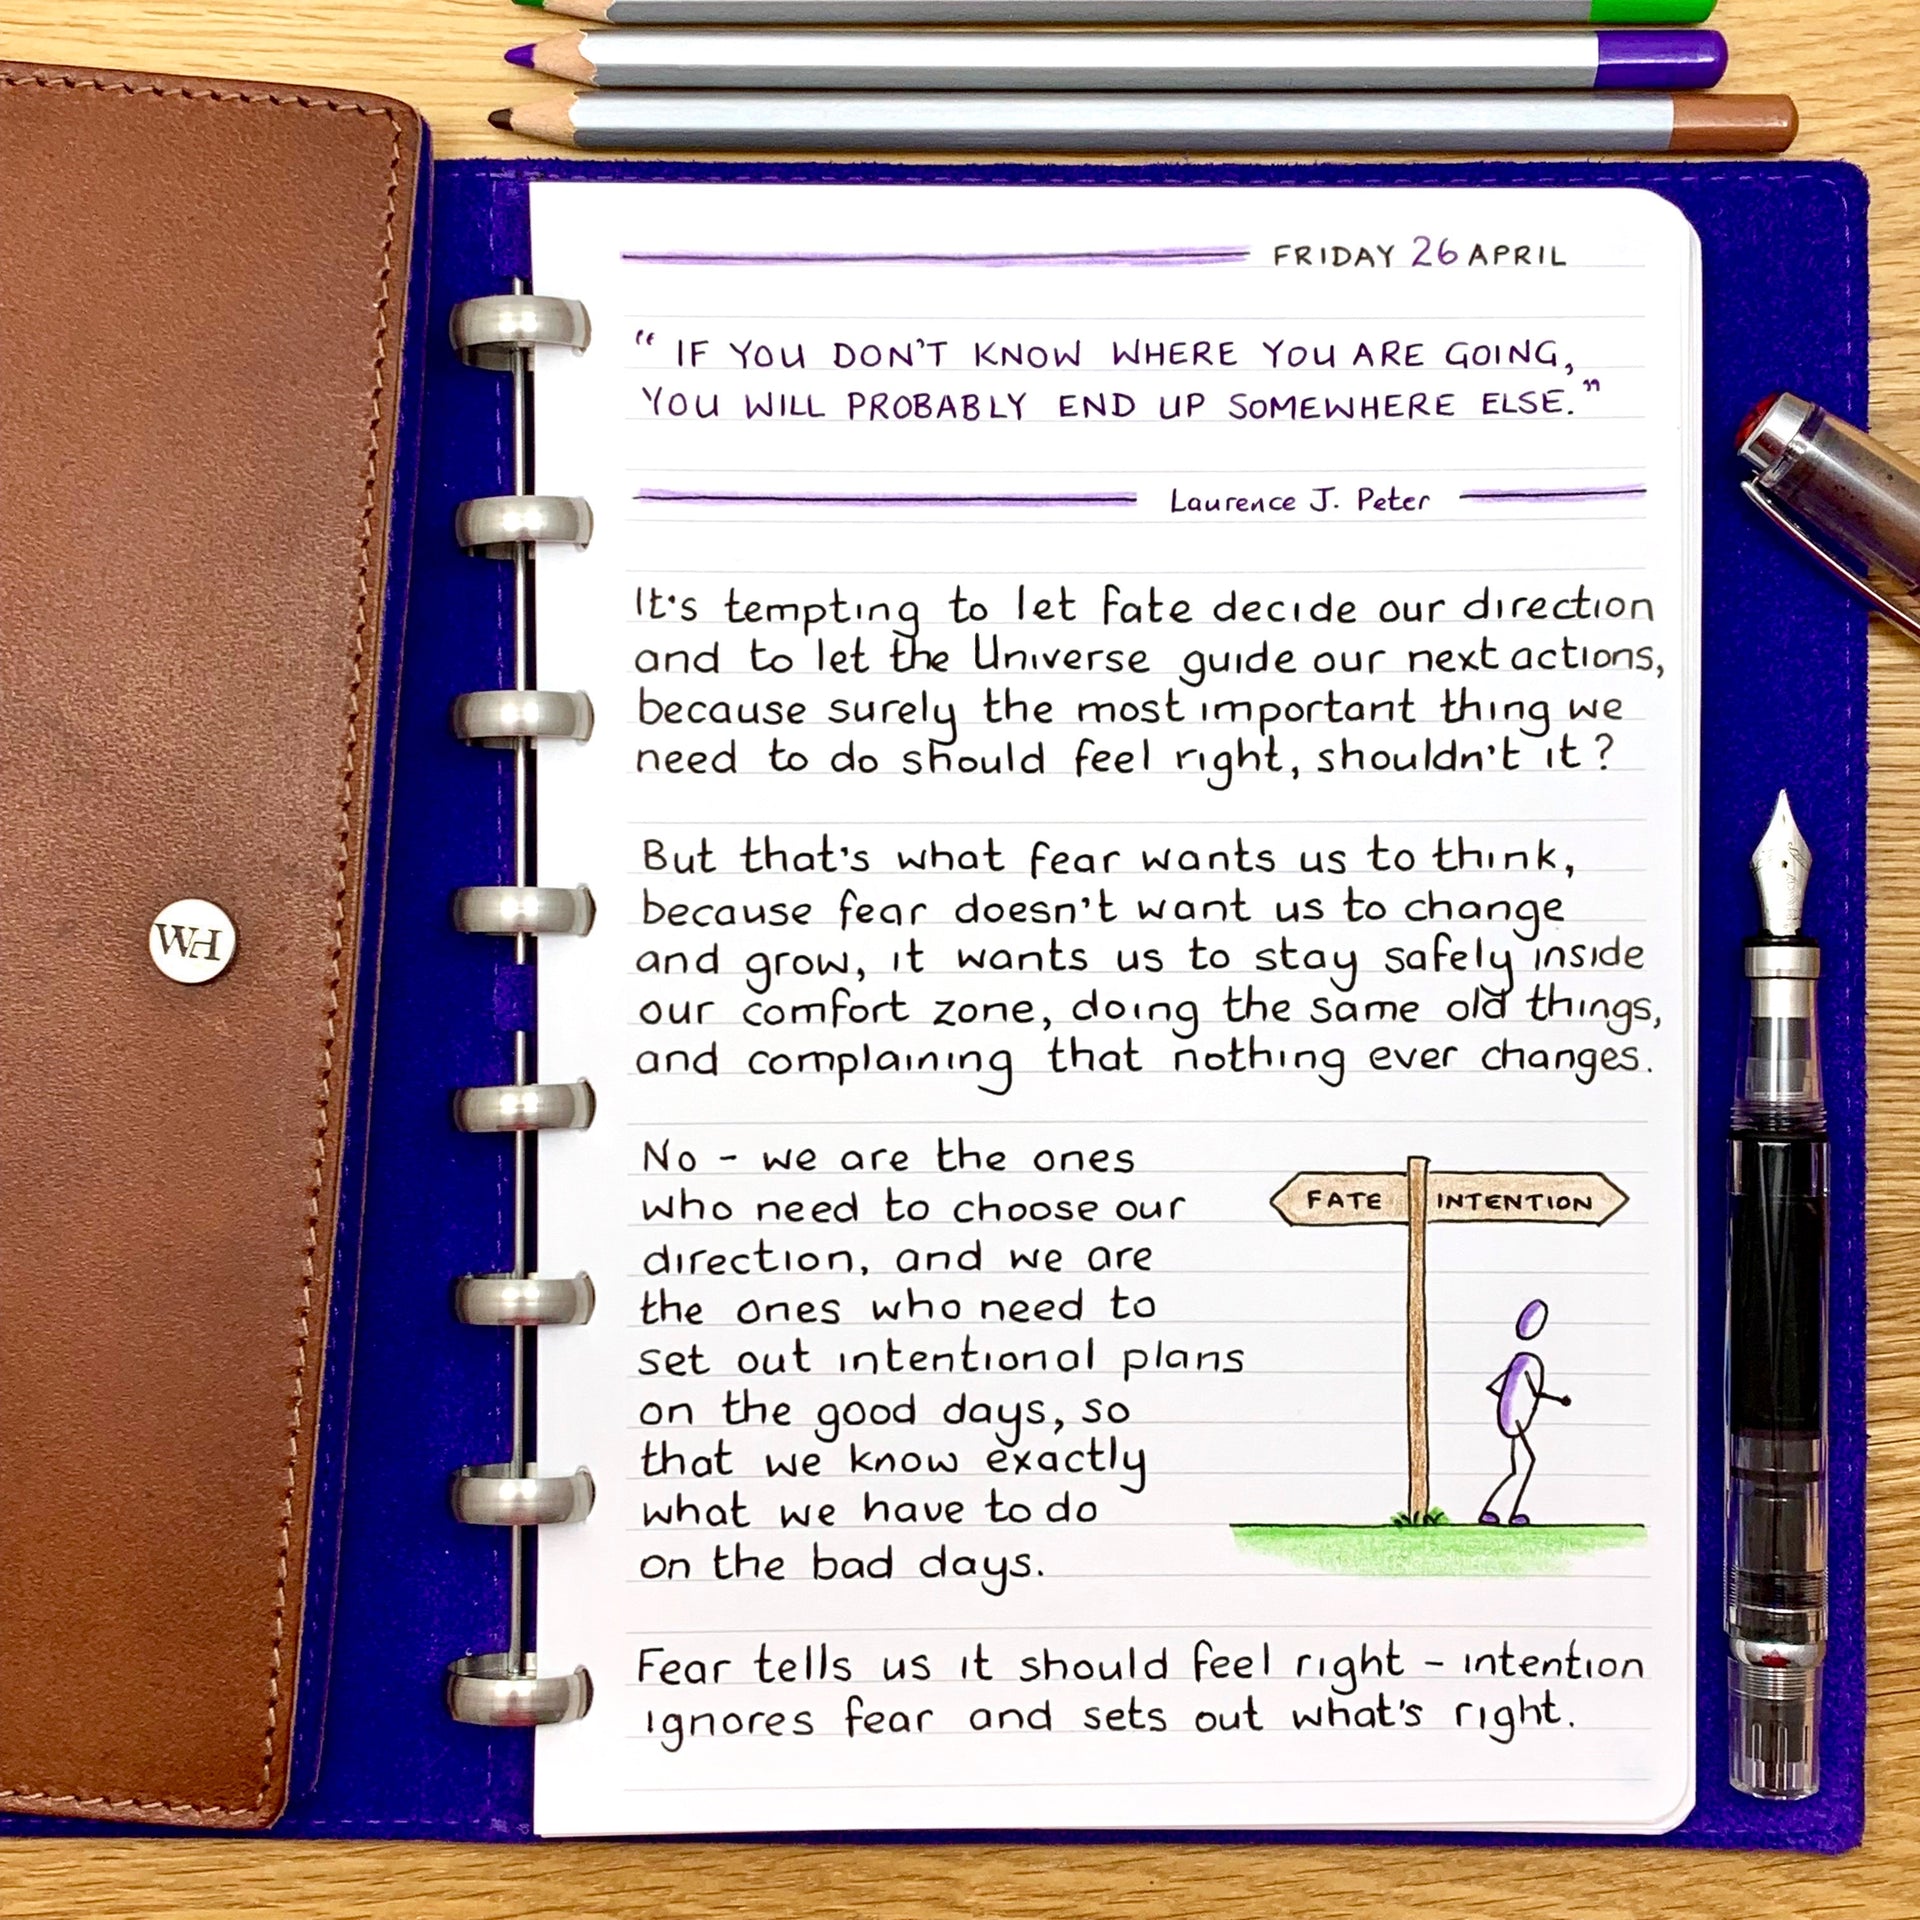 FRIDAY 26 APRIL
“ IF YOU DON'T KNOW WHERE YOU ARE GOING,
YOU WILL PROBABLY END UP SOMEWHERE ELSE.”
Laurence J. Peter
It's tempting to let fate decide our direction
and to let the Universe guide our next actions,
because surely the most important thing we
need to do should feel right, shouldn't it?
But that's what fear wants us to think,
because fear doesn't want us to change
and grow, it wants us to stay safely inside
our comfort zone, doing the same old things,
and complaining that nothing ever changes.
No - we are the ones
who need to choose our
direction, and we are
the ones who need to
set out intentional plans
on the good days, so
that we know exactly
what we have to do
on the bad days.
FATE INTENTION
Fear tells us it should feel right - intention
ignores fear and sets out what's right.
WH